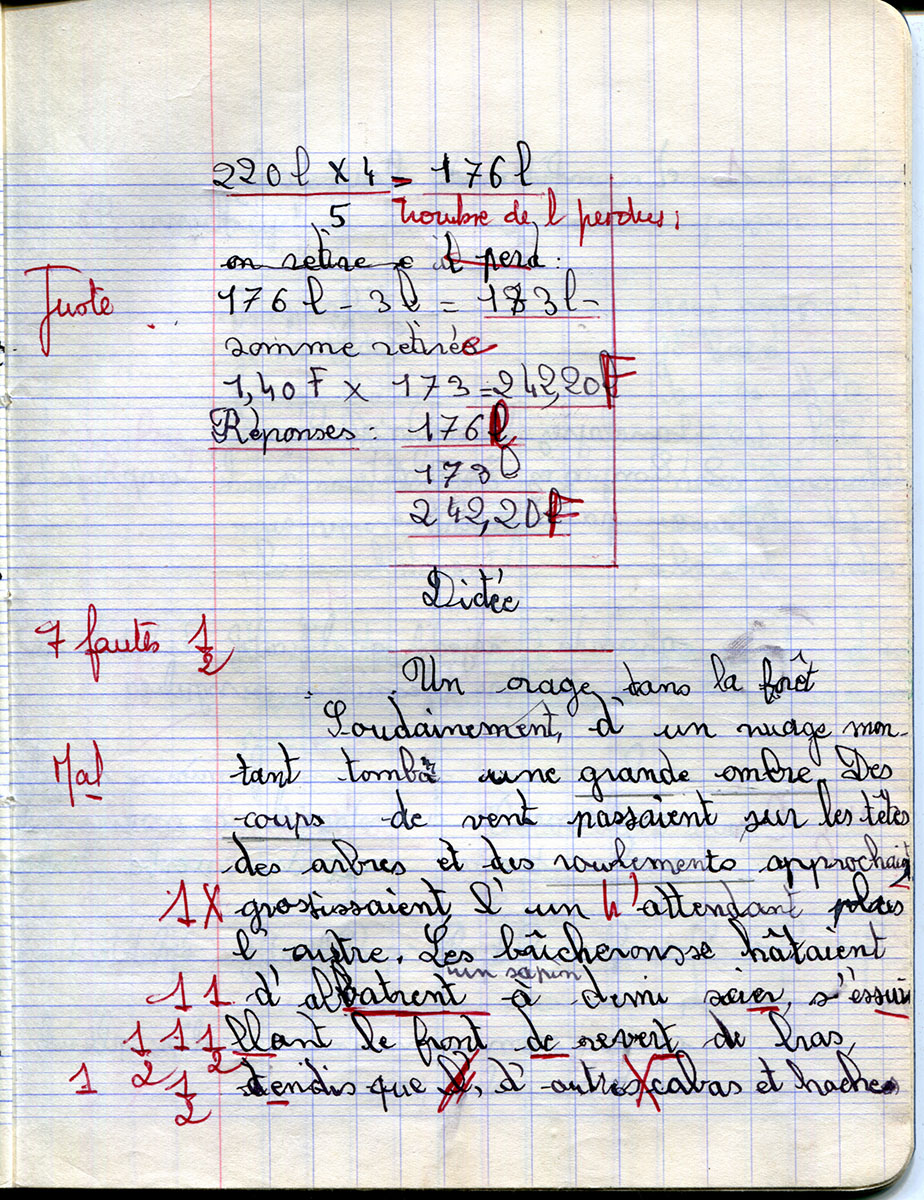 220 l x 4 = 176 l
5 nombre de l perdus :
on retire e il perd :
Juste
176 l - 3 l = 173 l -
somme retirée
1,40 F x 173 = 242,20 F
Réponses : 176 l
173 l
242,20 F
Dictée
7 fautes 1/2
Un orage dans la forêt
Soudainement, d'un nuage mon-
Mal
tant tomba une grande ombre. Des
coups de vent passaient sur les têtes
des arbres et des roulements approchait
1 X grossissaient, l'un n'attendant plus
l'autre. Les bûcherons se hâtaient
un sapin
1 1 d'abbatrent à demi scier, s'essui
1 1/2 1/2 llant le front de revert de bras,
1 1/2 tendis que , d'autres cabas et haches